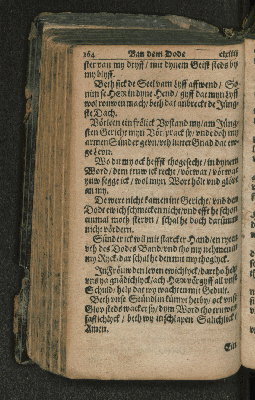 164 Van dem Dode
ster van my dryff / mit dynem Geist steds by
my blyff.
Beth sick de Seel vam Lyff affwend / So
nim se HERR in dyne Hend / gyff dat myn Lyff
wol rouwen mach / beth dat anbreckt de Jüng-
ste Dach.
Vörleen ein frölick Upstand my / am Jüng-
sten Gericht myn Vör sy / unde doch my
armen Sünder geven / uth luter Gnad dat ewi-
ge Leven.
Wo du my ock heffst thogesecht / in dynem
Word / dem truw ick recht / vörwar / vörwar
yuw segge ick / wol myn Wort hölt und glövt
an my.
De werè nicht kamen ine Gericht / und den
Dodt ewich schmecken nicht / und efft he schon
einmal moth sterven / schal he doch darümme
nicht vörderven.
Sünder ick wil mit starcker Hand / en ryten
uth des Dodes Band / und tho my nehmen in
my Ryck / dar schal he denn mit my thoglyck.
In Fröuwden leven ewichlyck / dartho help
uns ya gnädichlyck / ach HERR vörgyff all unse
Schuld / help dat wy wachten mit Gedult.
Beth unse Stündlin kümpt herby / ock unse
Glov steds wacker sy / dym Word tho truwen
fastichlyck / beth wy intschlapen Salichlick /
Amen.